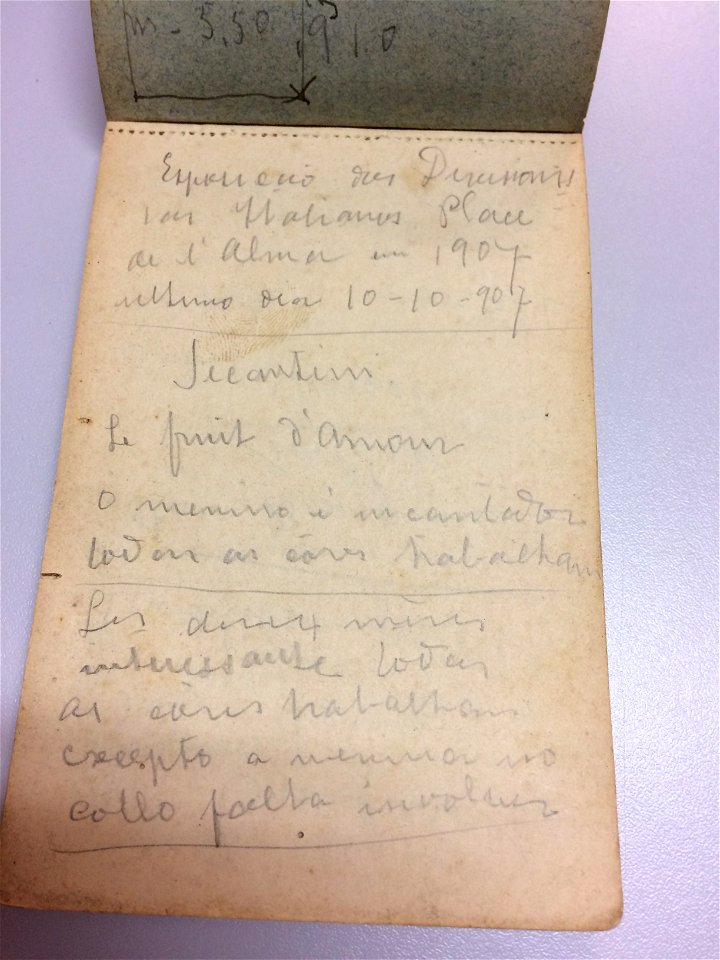 m - 3,50 ,9 1.0
Exposição dos Divisionis
tas Italianos Place
de l'Alma em 1907
ultimo dia 10-10-907
Secantini.
Le fruit d'Amour
O menino é incantador
todas as côres trabalham
Les deux mères
interessante todas
as côres trabalham
excepto a menina no
collo falta involver